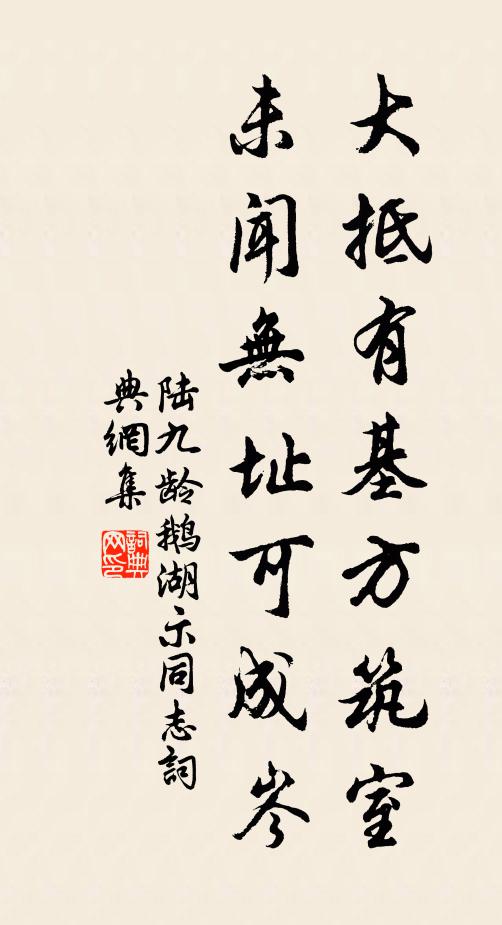 大抵有基方筑室
未闻無址可成岑
陆九龄鹅湖示同志詞
典網集
詞典网印